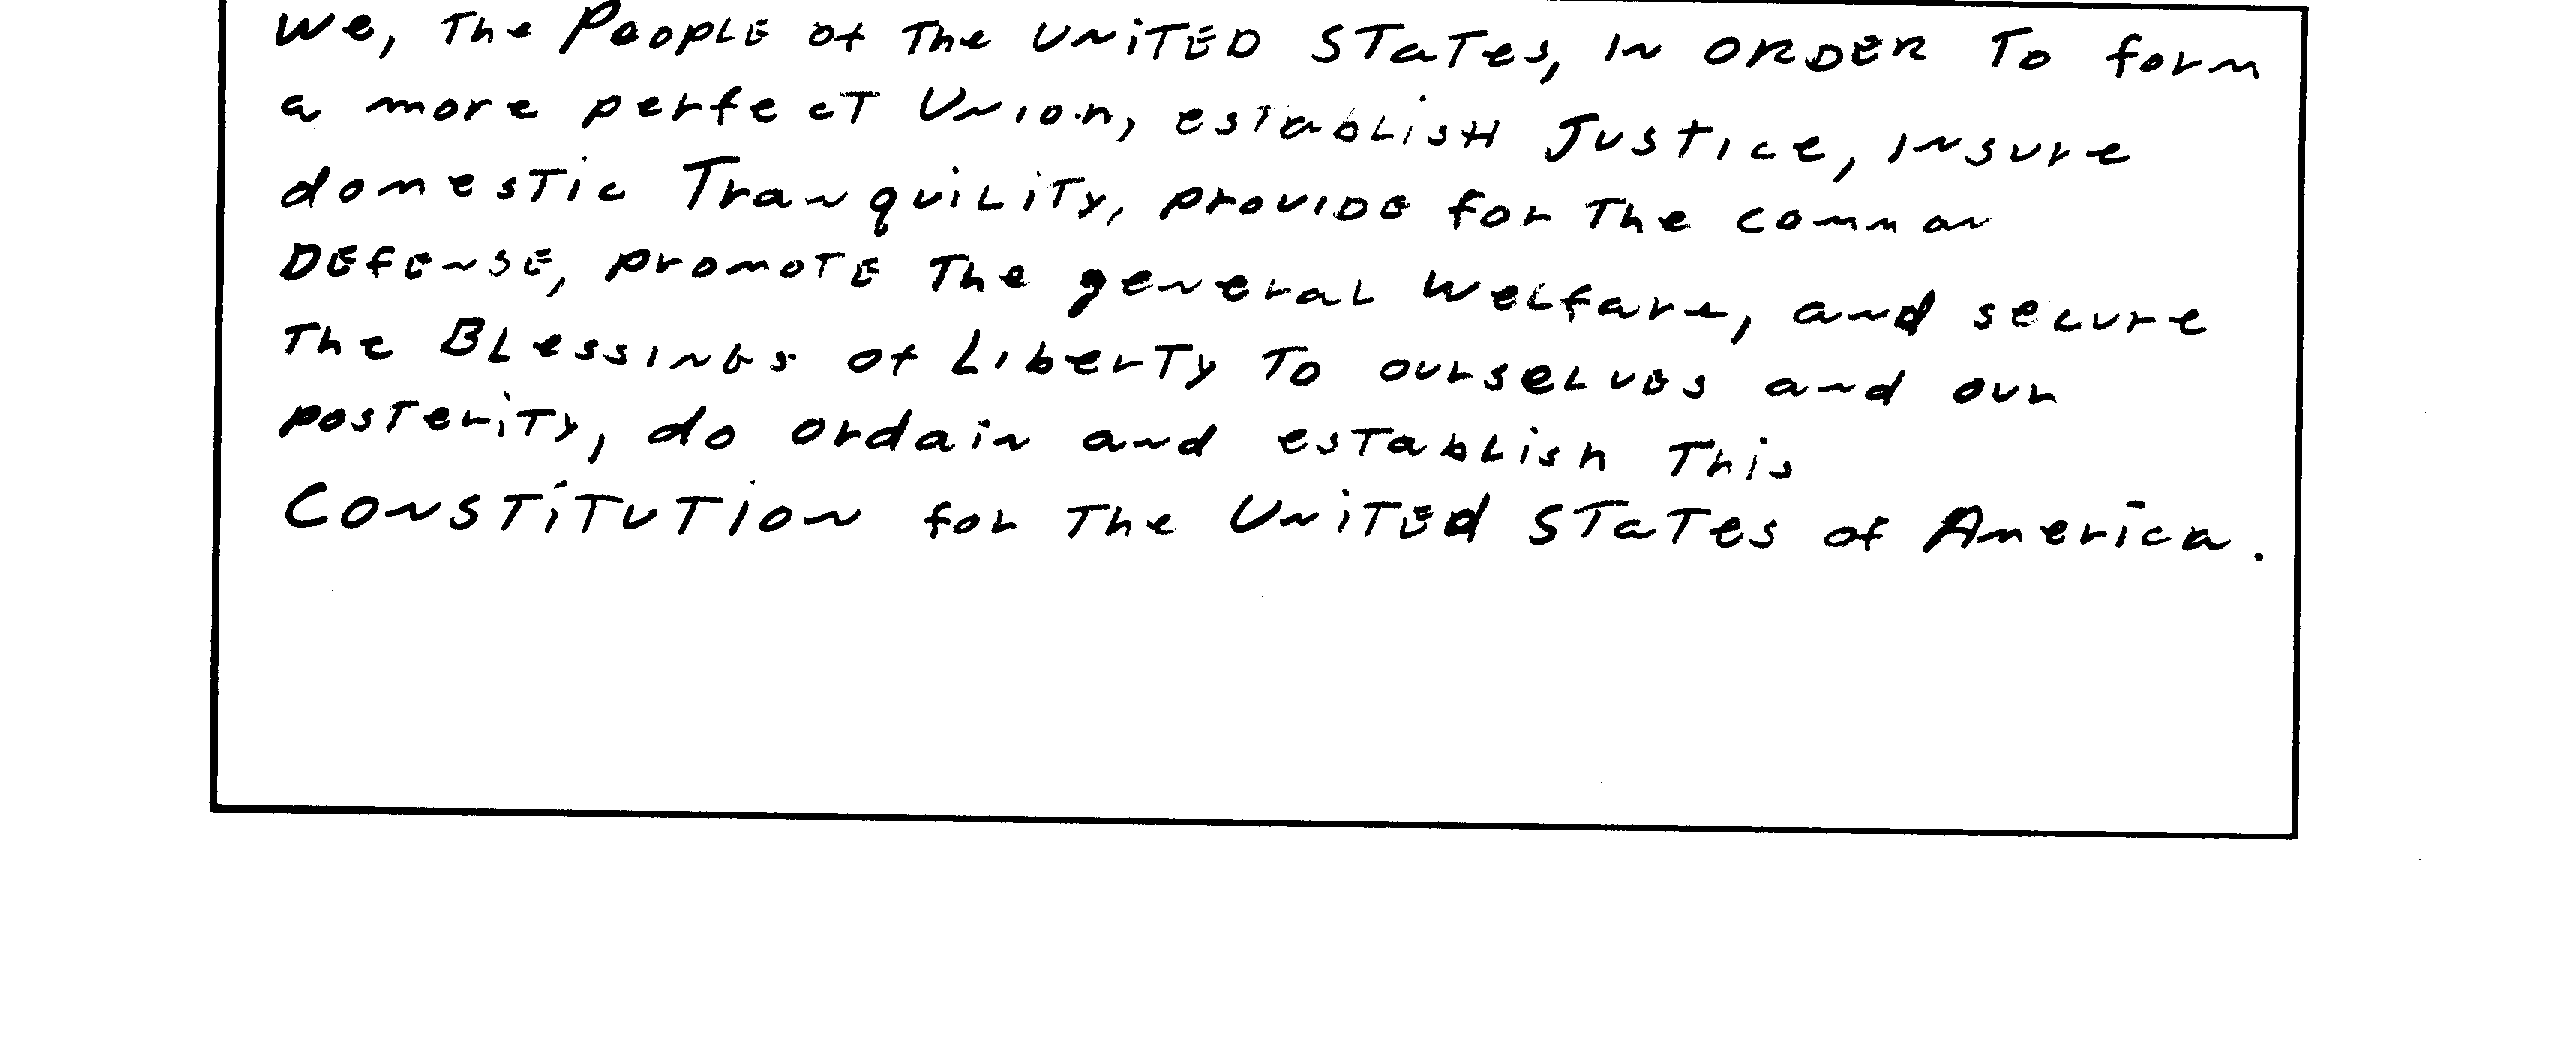 We, The People of The United States, in order to form
a more perfect Union, establish Justice, insure
domestic Tranquility, provide for The common
Defense, promote The general Welfare, and secure
The Blessings of Liberty To ourselves and our
posterity, do ordain and establish This
Constitution for The United States of America.